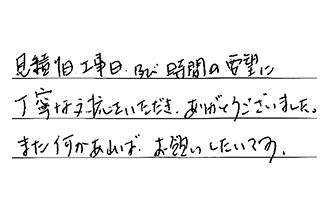 見積日、工事日、及び時間の要望に
丁寧な対応をいただき、ありがとうございました。
また何かあれば、お願いしたいです。